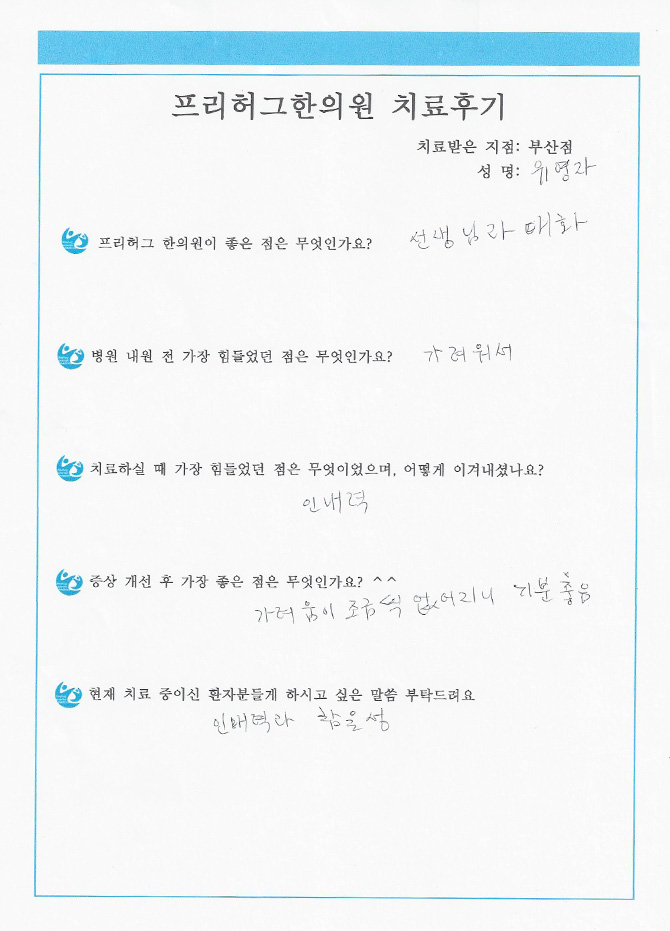 프리허그한의원 치료후기
치료받은 지점: 부산점
성 명: 위영자
프리허그 한의원이 좋은 점은 무엇인가요? 선생님과 대화
병원 내원 전 가장 힘들었던 점은 무엇인가요? 가려워서
치료하실 때 가장 힘들었던 점은 무엇이었으며, 어떻게 이겨내셨나요?
인내력
증상 개선 후 가장 좋은 점은 무엇인가요? ^^
가려움이 조금씩 없어지니 기분 좋음
현재 치료 중이신 환자분들게 하시고 싶은 말씀 부탁드려요
인내력과 참을성